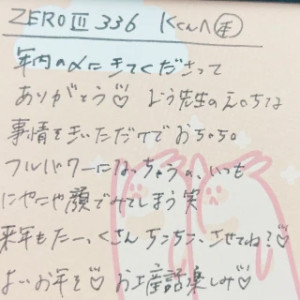 ZERO Ⅲ 336 Kくんへ
年内の〆にきてくださって
ありがとう♡ よう先生のえっちな
事情をきいただけでおちんちん
フルパワーになっちゃうの、いつも
にやにや顔でみてしまう笑
来年もたーっくさんちんちん、させてね?♡
よいお年を♡ お土産話楽しみ♡